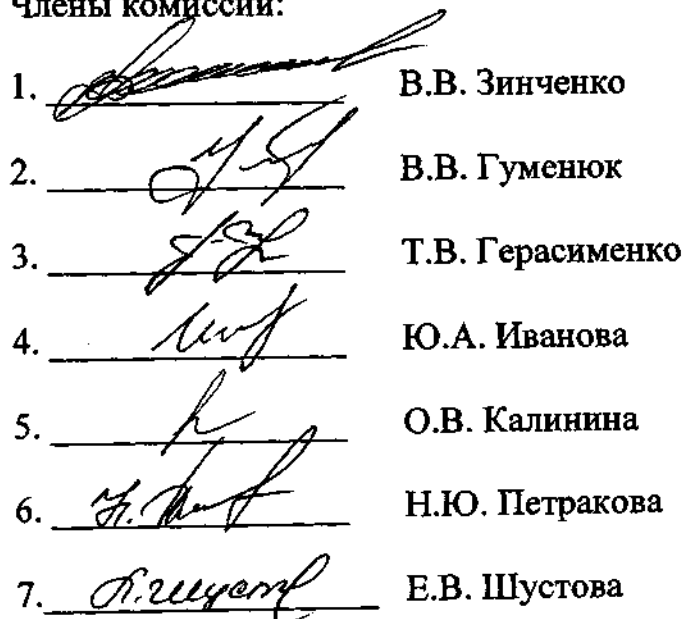 Члены комиссии:
1. В.В. Зинченко
2. В.В. Гуменюк
3. Т.В. Герасименко
4. Ю.А. Иванова
5. О.В. Калинина
6. Н.Ю. Петракова
7. Е.В. Шустова